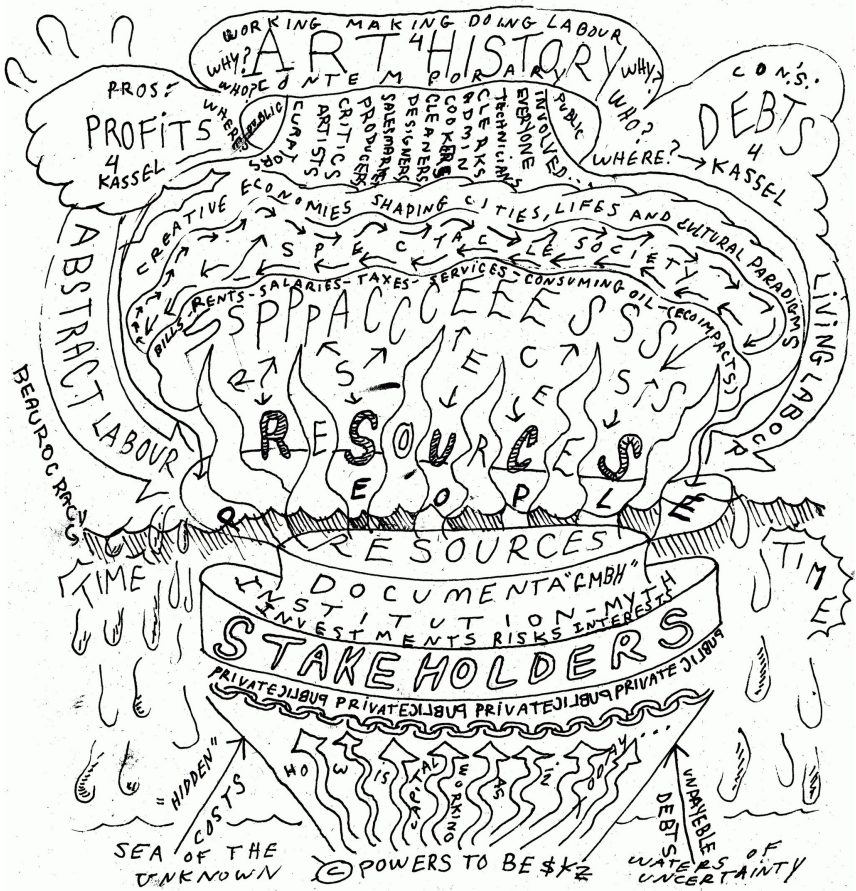 WORKING MAKING DOING LABOUR
ART 4 HISTORY
WHY?
WHO?
WHERE
CONTEMPORARY
WHY?
WHO?
WHERE?
PROS:
PROFITS
4
KASSEL
CON.'S:
DEBTS
4
KASSEL
PUBLIC
CURATORS
ARTISTS
CRITICS
PRODUCERS
DESIGNERS
CLEANERS
COOKERS
ADMIN
CLERKS
TECHNICIANS
EVERYONE
INVOLVED...
PUBLIC
CREATIVE ECONOMIES SHAPING CITIES, LIFES AND CULTURAL PARADIGMS
SPECTACLE SOCIETY
BILLS-RENTS-SALARIES-TAXES-SERVICES-CONSUMING OIL-(ECOIMPACTS)
SPPPACCCEEESSSS
ABSTRACT LABOUR
LIVING LABOUR
BEAUROCRACY
R S E C E S S
RESOURCES
PEOPLE
RESOURCES
TIME
TIME
DOCUMENTA "GMBH"
INSTITUTION-MYTH
INVESTMENTS RISKS INTERESTS
STAKEHOLDERS
PRIVATE PUBLIC PRIVATE PUBLIC PRIVATE PUBLIC PRIVATE PUBLIC
HOW IS
WORKING
AS
TODAY...
"HIDDEN"
COSTS
UNPAYEBLE
DEBTS
SEA OF THE
UNKNOWN
© POWERS TO BE $¥Z
WATERS OF
UNCERTAINTY